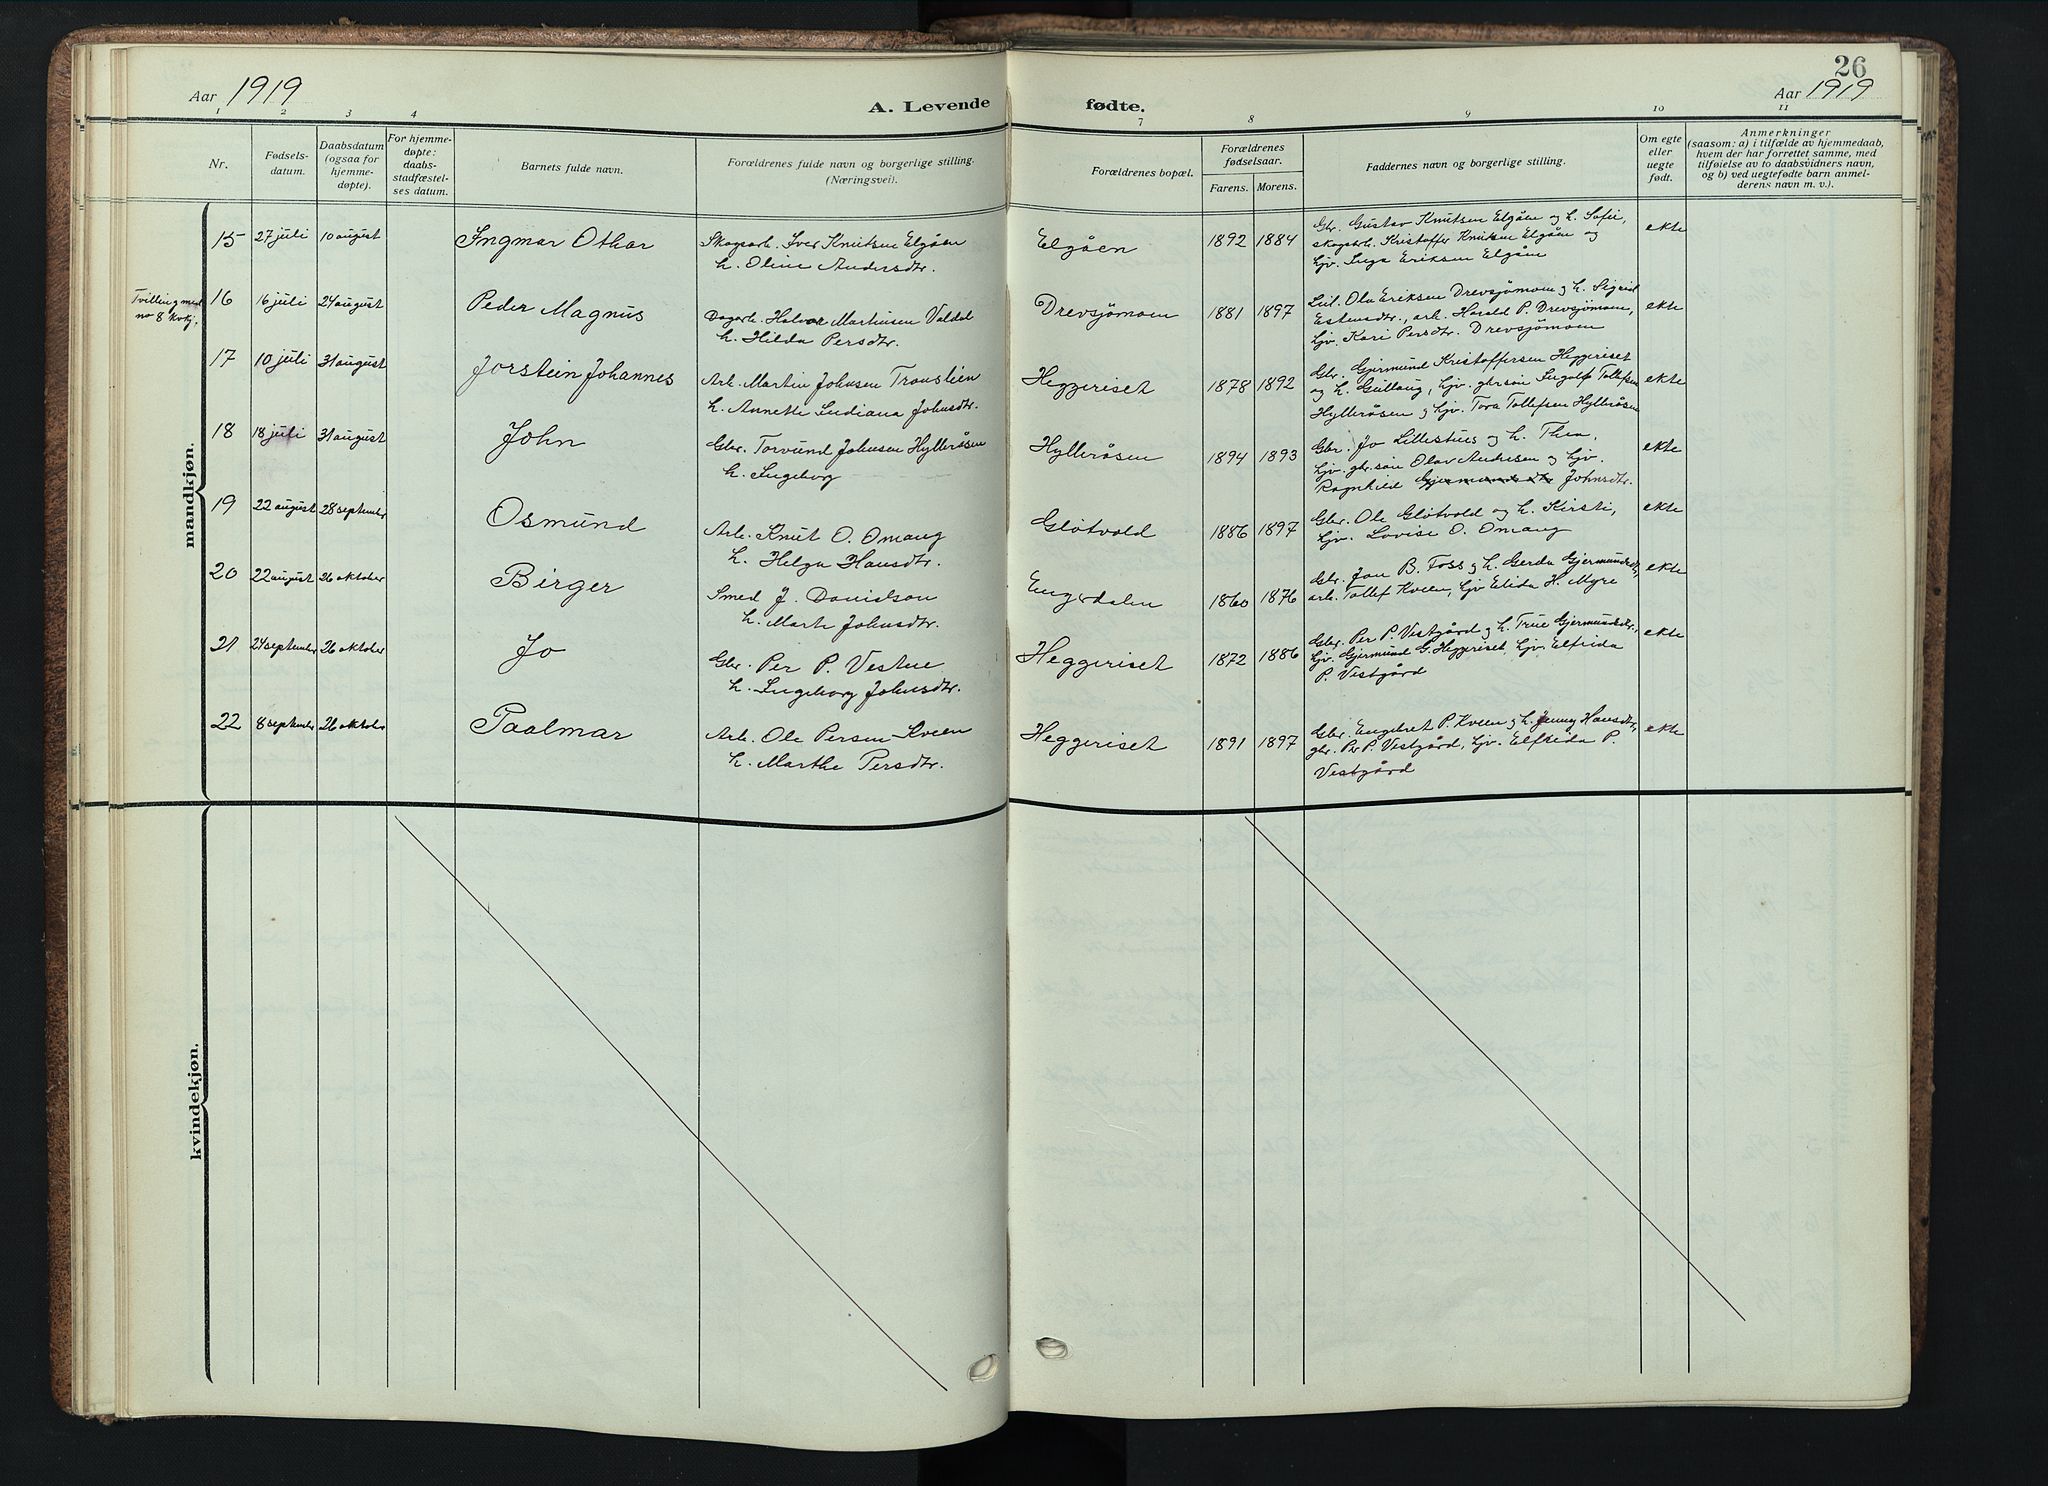 26
Aar 1919
A. Levende fødte.
Aar 1919
1 2 3 4 7 8 9 10 11
Nr.
Fødsels-
datum.
Daabsdatum
(ogsaa for
hjemme-
døpte).
For hjemme-
døpte:
daabs-
stadfæstel-
ses datum.
Barnets fulde navn.
Forældrenes fulde navn og borgerlige stilling.
(Næringsvei).
Forældrenes bopæl.
Forældrenes
fødselsaar.
Farens. Morens.
Faddernes navn og borgerlige stilling.
Om egte
eller
uegte
født.
Anmerkninger
(saasom: a) i tilfælde av hjemmedaab,
hvem der har forrettet samme, med
tilføielse av to daabsvidners navn,
og b) ved uegtefødte barn anmel-
derens navn m. v.).
mandkjøn.
15 27 juli 10 august Ingmar Othar
Skogsarb. Iver Knutsen Elgåen
h. Oline Andersdtr.
Elgåen 1892 1884
Gbr. Gustav Knutsen Elgåen og h. Sofie,
skogsarb. Kristoffer Knutsen Elgåen og
Ljv. Inga Eriksen Elgåen
ekte
Tvilling med
no 8 kvkj.
16 16 juli 24 august Peder Magnus
Dagarb. Halvor Martinsen Valdal
h. Hilda Persdtr.
Drevsjömoen 1881 1897
Ola Eriksen Drevsjömoen og h. Sigrid
Estensdtr., arb. Harald P. Drevsjömoen,
Ljv. Kari Persdtr. Drevsjömoen
ekte
17 10 juli 31 august Jorstein Johannes
Arb. Martin Johnsen Tronslien
h. Annette Indiana Johnsdtr.
Heggeriset 1878 1892
Gbr. Gjermund Kristoffersen Heggeriset
og h. Gullaug, Ljv. gbr.søn Ingolf Tollefsen
Hylleråsen og Ljv. Tora Tollefsen Hylleråsen
ekte
18 18 juli 31 august John
Gbr. Torvund Johnsen Hylleråsen
h. Ingeborg
Hylleråsen 1894 1893
Gbr. Jo Lillestues og h. Thea,
Ljv. gbr.søn Olav Andresen og Ljv.
Ragnhild Gjermundsdtr. Johnsdtr.
ekte
19 22 august 28 september Osmund
Arb. Knut O. Omang
h. Helga Hansdtr.
Gløtvold 1886 1897
Gbr. Ole Gløtvold og h. Kirsti,
Ljv. Lovise O. Omang
ekte
20 22 august 26 oktober Birger
Smed J. Danielson
h. Marte Johnsdtr.
Engerdalen 1860 1876
Gbr. Jon B. Foss og h. Gerda Gjermundsdtr,
arb. Tollef Kveen, Ljv Elida H. Myre
ekte
21 24 september 26 oktober Jo
Gbr. Per P. Vestue
h. Ingeborg Johnsdtr.
Heggeriset 1872 1886
Gbr. Per P. Vestgård og h. True Gjermundsdtr.,
Ljv. Gjermund G. Heggeriset, Ljv. Elfrida
P. Vestgård
ekte
22 8 september 26 oktober Paalmar
Arb. Ole Persen Kveen
h. Marthe Persdtr.
Heggeriset 1891 1897
Gbr. Engebret P. Kveen og h. Jenny Hansdtr,
gbr. Per P. Vestgård, Ljv. Elfrida P.
Vestgård
ekte
kvindekjøn.